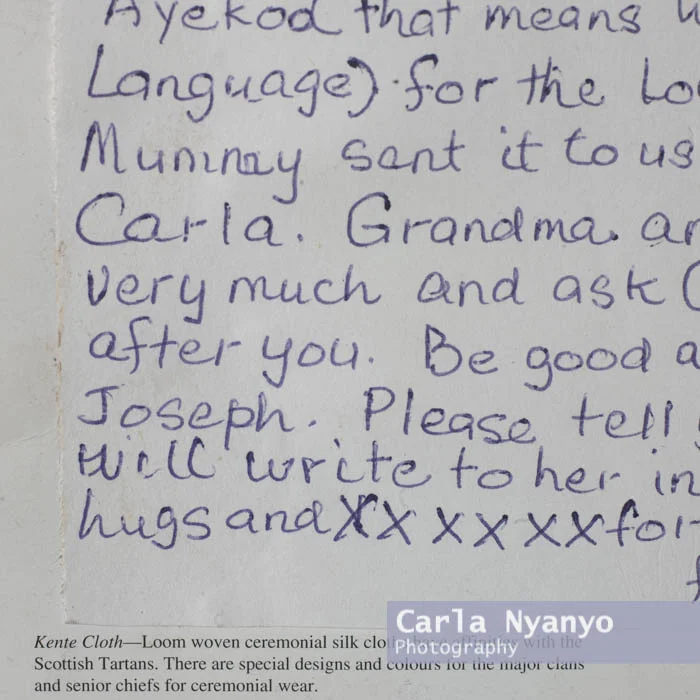 Ayekod that means
Language) for the
Mummy sent it to us
Carla. Grandma
very much and ask
after you. Be good
Joseph. Please tell
will write to her in
hugs and XX X X X X for
Carla Nyanyo
Photography
Kente Cloth—Loom woven ceremonial silk cloth have affinities with the
Scottish Tartans. There are special designs and colours for the major clans
and senior chiefs for ceremonial wear.